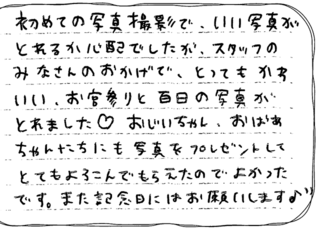 初めての写真撮影で、いい写真が
とれるか心配でしたが、スタッフの
みなさんのおかげで、とってもかわ
いい、お宮参りと百日の写真が
とれました♡おじいちゃん、おばあ
ちゃんたちにも写真をプレゼントして
とてもよろこんでもらえたのでよかった
です。また記念日にはお願いします♪